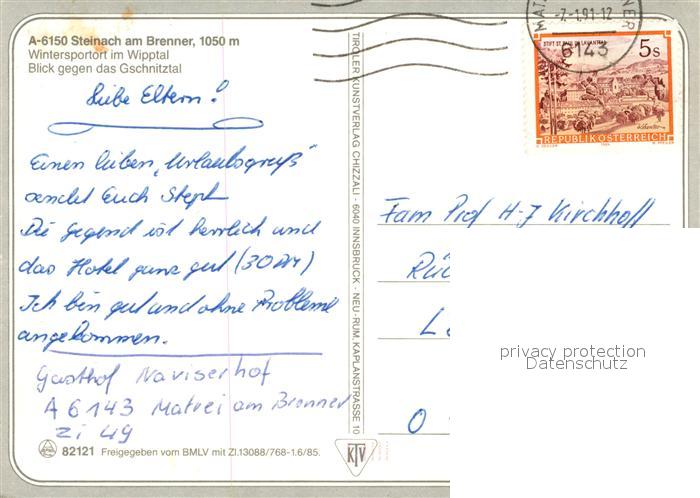 A-6150 Steinach am Brenner, 1050 m
Wintersportort im Wipptal
Blick gegen das Gschnitztal
Liebe Eltern!
Einen lieben "Urlaubsgruß"
sendet Euch Steph
Die Gegend ist herrlich und
das Hotel ganz gut (30 DM)
Ich bin gut und ohne Probleme
angekommen.
Gasthof Naviserhof
A 6143 Matrei am Brenner
Zi 49
82121 Freigegeben vom BMLV mit Zl.13088/768-1.6/85.
TIROLER KUNSTVERLAG CHIZZALI · 6040 INNSBRUCK - NEU-RUM, KAPLANSTRASSE 10
KTV
-7.-1.91-12
6143
STIFT ST. PAUL IM LAVANTTAL
5s
REPUBLIK ÖSTERREICH
Fam Prof H-J Kirchhoff
Rüc
L
O
privacy protection
Datenschutz